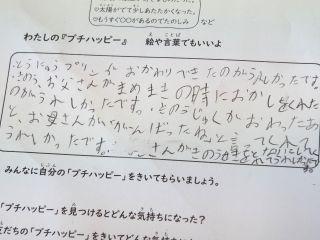 太陽がでて少しあたたかくなった。
もうすぐ〇〇があるのでたのしみ など
わたしの『プチハッピー』 絵や言葉でもいいよ
とうにゅうプリンが おかわりできたのがうれしかったです。
きのう、お父さんがまめまきの時におかしをくれた
のがうれしかったです。そのじゅくがおわったあ
と、お母さんががんばったね」と言ってくれて
うれしかったです。
みんなに自分の「プチハッピー」をきいてもらいましょう。
プチハッピー」を見つけるとどんな気持ちになった?
友だちの「プチハッピー」をきいてどんな気持ち